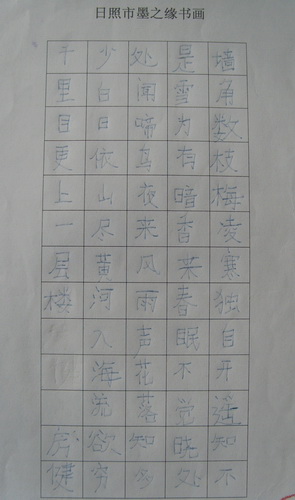 日照市墨之缘书画
墙角数枝梅凌寒独自开遥知不
是雪为有暗香来春眠不觉晓处
处闻啼鸟夜来风雨声花落知多
少白日依山尽黄河入海流欲穷
千里目更上一层楼健